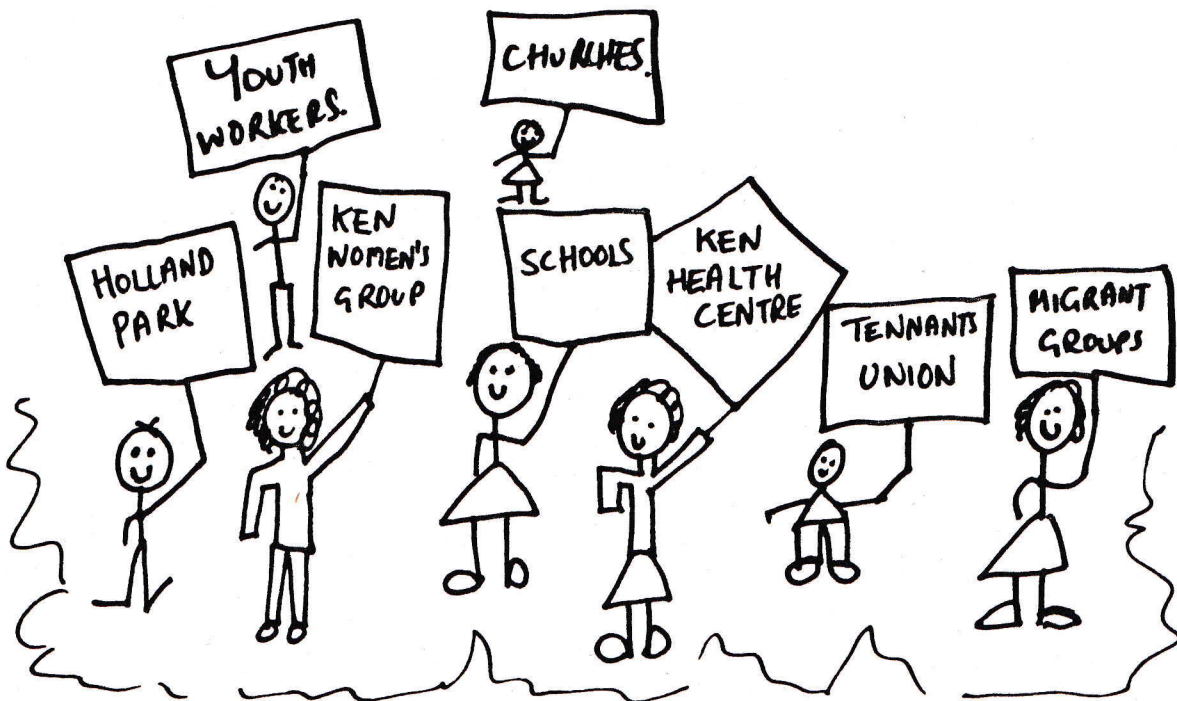 YOUTH
WORKERS.
CHURCHES.
HOLLAND
PARK
KEN
WOMEN'S
GROUP
SCHOOLS
KEN
HEALTH
CENTRE
TENNANTS
UNION
MIGRANT
GROUPS